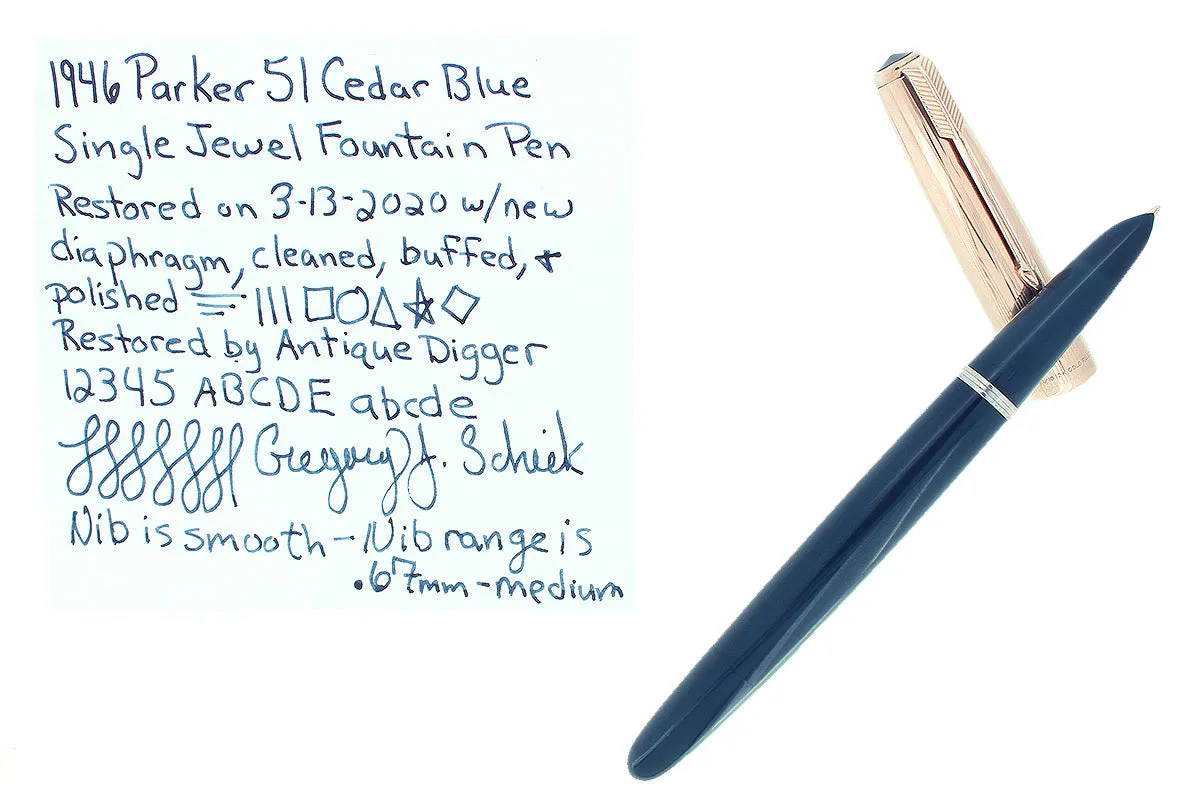 1946 Parker 51 Cedar Blue
Single Jewel Fountain Pen
Restored on 3-13-2020 w/new
diaphragm, cleaned, buffed, +
polished
Restored by Antique Digger
12345 ABCDE abcde
Gregory J. Schiek
Nib is smooth - Nib range is
.67mm - medium